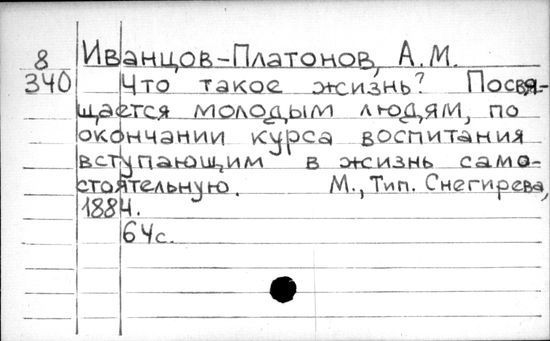 8 Иванцов-Платонов, А.М.
340 Что такое жизнь? Посвя-
щается молодым людям, по
окончании курса воспитания
вступающим в жизнь само-
стоятельную. М., Тип. Снегирева,
1884.
64с.